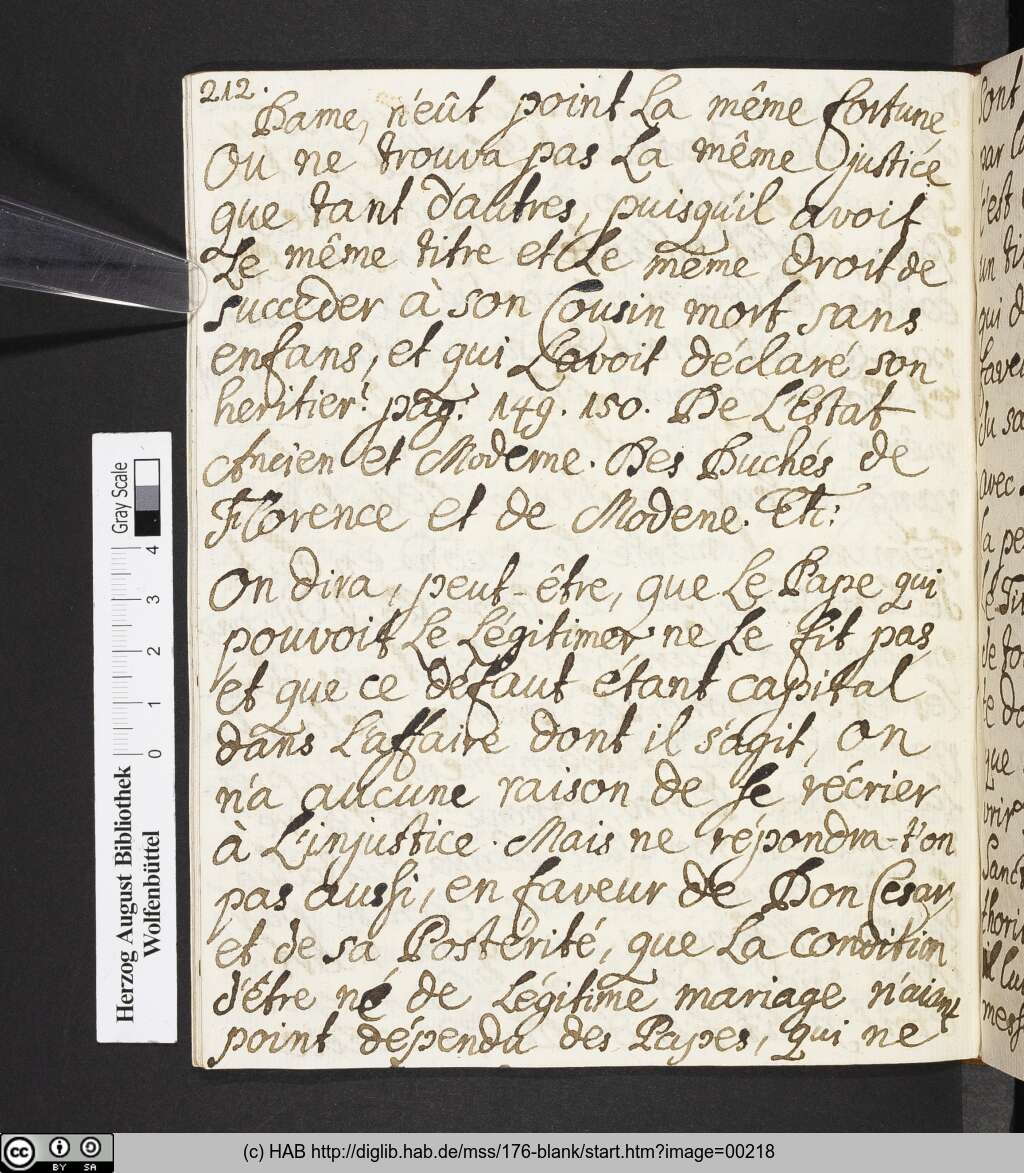 212.
Dame, n'eût point La même fortune
Ou ne trouva pas La même justice
que tant d'autres, puisqu'il avoit
Le même titre et Le même droit de
succeder à son Cousin mort sans
enfans, et qui L'avoit déclaré son
heritier. pag. 149. 150. De L'Estat
Ancien et Moderne. Des Duchés de
Florence et de Modene. Etc:
On dira, peut-être, que Le Pape qui
pouvoit Le Légitimer ne Le fit pas,
et que ce défaut étant capital
dans L'affaire dont il s'agit, on
n'a aucune raison de se récrier
à L'injustice. Mais ne répondra-t'on
pas aussi, en faveur de Don Cesar,
et de sa Posterité, que La condition
d'être né de Légitime mariage n'aiant
point dépendu des Papes, qui ne
Herzog August Bibliothek
Wolfenbüttel
Gray Scale
0 1 2 3 4
cc BY SA
(c) HAB http://diglib.hab.de/mss/176-blank/start.htm?image=00218